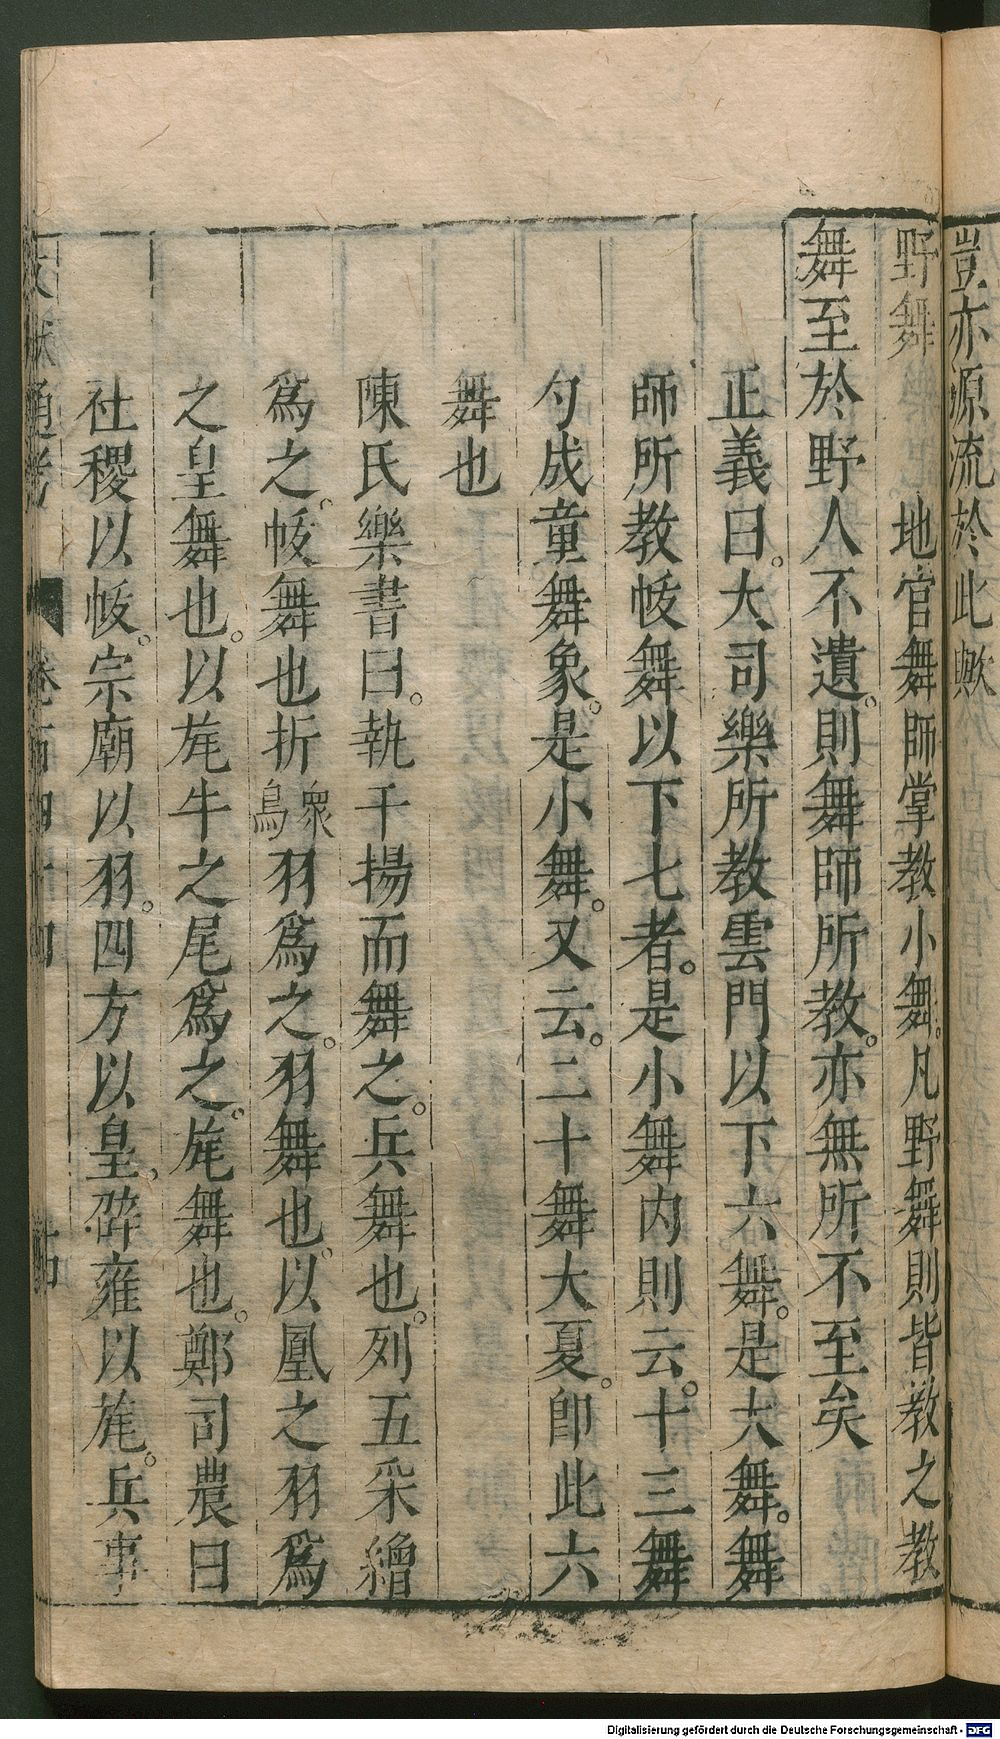 豈亦源流於此歟
野舞 地官舞師掌教小舞。凡野舞則皆教之教
舞至於野人不遺。則舞師所教。亦無所不至矣
正義曰。大司樂所教雲門以下六舞。是大舞。舞
師所教帗舞以下七者。是小舞内則云。十三舞
勺成童舞象。是小舞。又云。二十舞大夏。即此六
舞也
陳氏樂書曰。執干揚而舞之。兵舞也。列五采繒
爲之。帗舞也折衆鳥羽爲之。羽舞也。以凰之羽爲
之皇舞也。以旄牛之尾爲之。旄舞也。鄭司農曰
社稷以帗。宗廟以羽。四方以皇。辟雍以旄。兵事
文獻通考 卷一百四十四
Digitalisierung gefördert durch die Deutsche Forschungsgemeinschaft - DFG